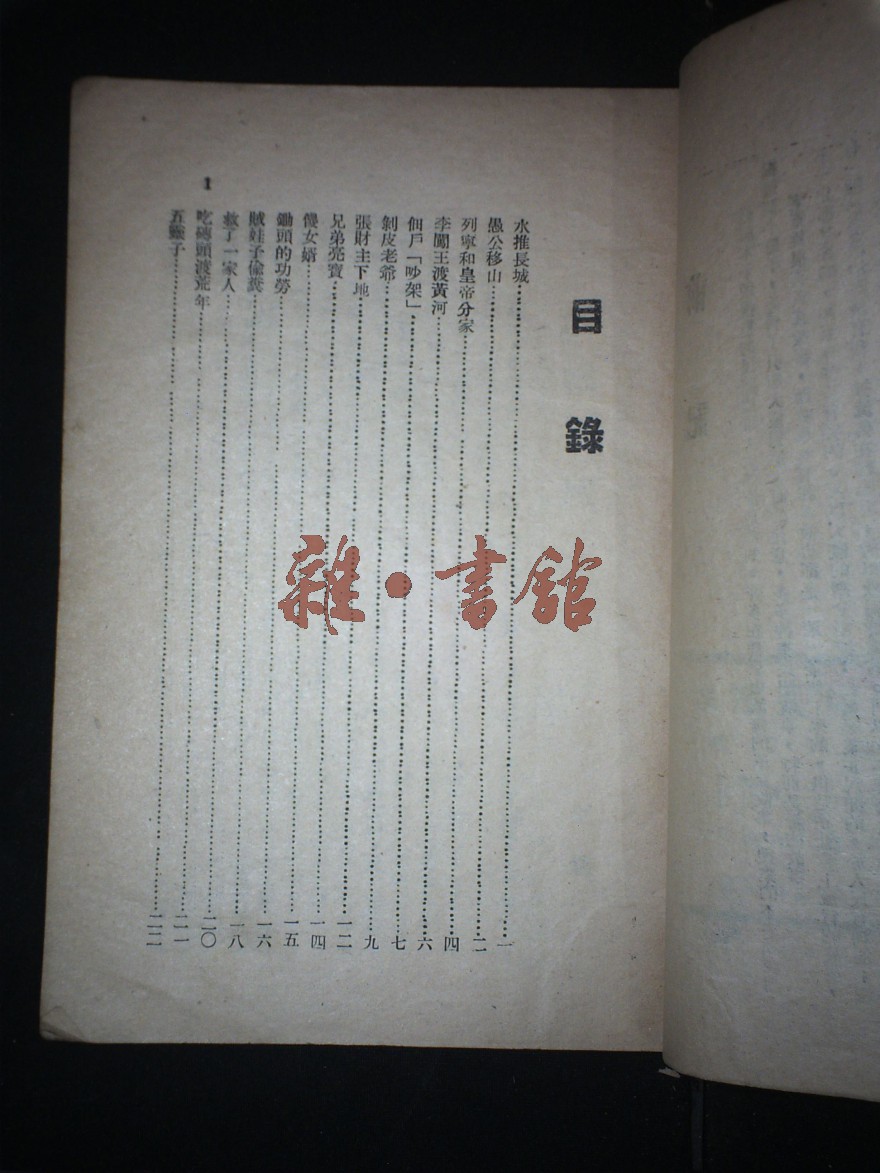 目錄
水推長城……一
愚公移山……二
列寧和皇帝分家……四
李闖王渡黃河……六
佃戶「吵架」……七
剝皮老爺……九
張財主下地……一二
兄弟亮寶……一四
傻女婿……一五
鋤頭的功勞……一六
賊娃子偷糞……一八
救了一家人……二〇
吃磚頭渡荒年……二一
……二二
1
雜·書館